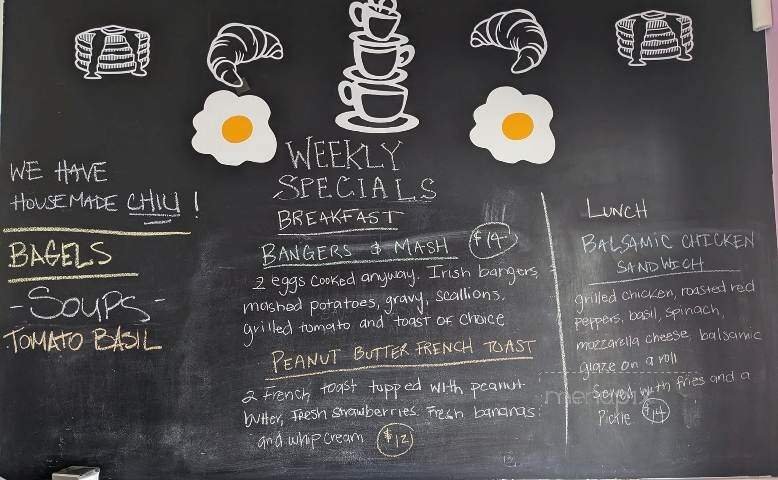 WE HAVE
HOUSEMADE CHILI !
BAGELS
-SOUPS-
TOMATO BASIL
WEEKLY
SPECIALS
BREAKFAST
BANGERS & MASH $14-
2 eggs cooked anyway. Irish bangers,
mashed potatoes, gravy, scallions.
grilled tomato and toast of choice
PEANUT BUTTER FRENCH TOAST
2 French toast topped with peanut
butter, fresh strawberries. Fresh bananas
and whip cream $12
LUNCH
BALSAMIC CHICKEN
SANDWICH
grilled chicken, roasted red
peppers, basil, spinach,
mozzarella cheese, balsamic
glaze on a roll
Served with fries and a
Pickle $14